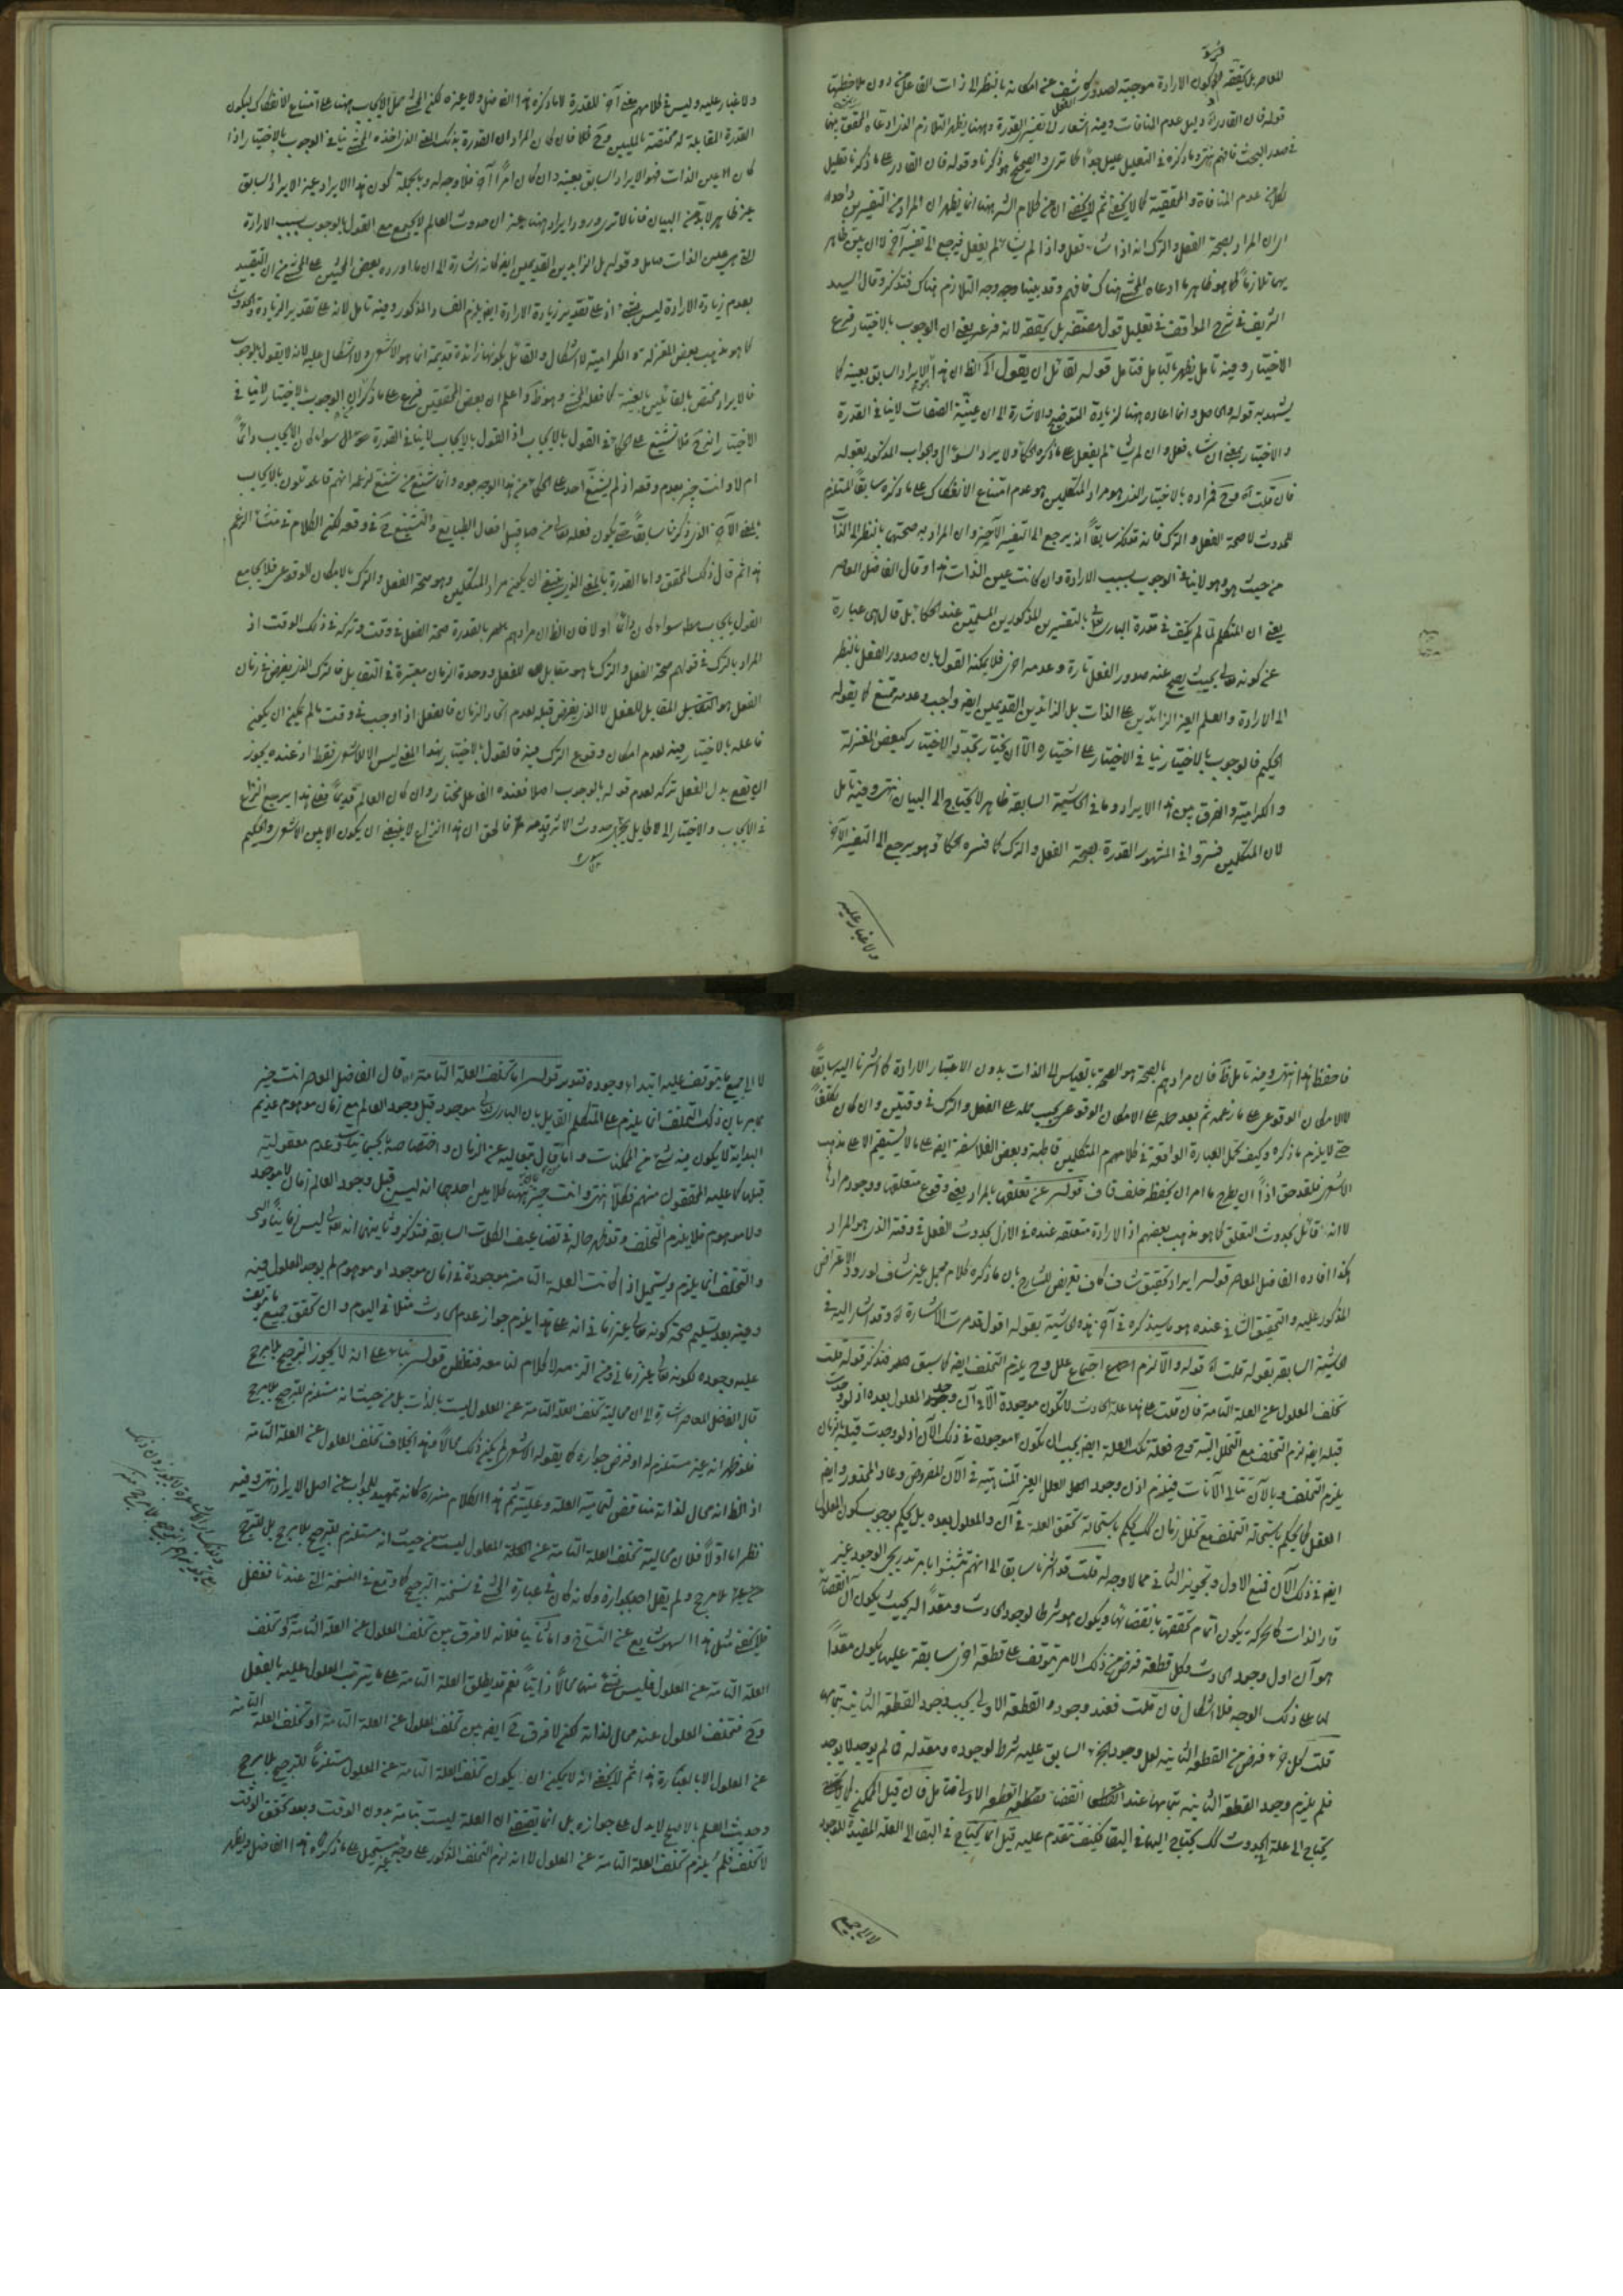 المعاصر بل تحققه فان كون الارادة موجبة لصدوره كاشف عن امكانه بالنظر الى ذات الفاعل من دون ملاحظتها
قوله فان القادر اه دليل عدم المنافات وفيه اشعار الى تفسير القدرة وههنا يظهر التلازم الذي ادعاه المحقق بينهما
في صدر البحث فافهم انتهى وما ذكره في التعليل عليل جدا كما ترى والصحيح ما هو ذكرنا وقوله فان القادر على ما ذكرنا تعليل
لكل من عدم المنافاة والمحققية كما لا يخفى ثم لا يخفى ان من كلام الشه ههنا انما يظهر ان المراد من التفسيرين واحد
اي ان المراد بصحة الفعل والترك انه اذا شاء فعل واذا لم يشأ لم يفعل فيرجع الى تفسير آخر لا ان بين ظاهر
يهما تلازما كما هو ظاهر ما ادعاه المحشي هناك فافهم وقد بينا وجه التلازم هناك فتذكر وقال السيد
الشريف في شرح المواقف في تعليل قول مقتضيه بل يحققه لانه فرعه يعني ان الوجوب بالاختيار فرع
الاختيار وفيه تامل يظهر بالتامل فتامل قوله لقائل ان يقول اه الظ ان هذا الايراد السابق بعينه كما
يشهد به قوله والحاصل وانما اعاده ههنا لزيادة التوضيح والاشارة الى ان عينية الصفات لا ينافي القدرة
والاختيار بمعنى ان شاء فعل وان لم يشأ لم يفعل على ما ذكره الحكماء ولا يراد السؤال والجواب المذكور بقوله
فان قلت اه وح فمراده بالاختيار الذي هو مراد المتكلمين هو عدم امتناع الانفكاك على ما ذكره سابقا المستلزم
للحدوث لا صحة الفعل والترك فانه قد ذكر سابقا انه يرجع الى التفسير الآخر وان المراد به صحتهما بالنظر الى الذات
من حيث هو وهو لا ينافي الوجوب بسبب الارادة وان كانت عين الذات هذا وقال الفاضل المعاصر
يعني ان المتكلم لما لم يكتف في قدرة الباري تعالى بالتفسيرين المذكورين المسلمين عند الحكماء بل قال هي عبارة
عن كونه تعالى بحيث يصح عنه صدور الفعل تارة وعدمه اخرى فلا يمكنه القول بان صدور الفعل بالنظر
الى الارادة والعلم الغير الزائدين على الذات بل الزائدين القديمين ايضا واجب وعدمه ممتنع كما يقوله
الحكيم فالوجوب بالاختيار ينافي الاختيار على اختياره الا ان يختار تجدد الاختيار كبعض المعتزلة
والكرامية والفرق بين هذا الايراد وما في الحاشية السابقة ظاهر لا يحتاج الى البيان انتهى وفيه تامل
لان المتكلمين فسروا في المشهور القدرة بصحة الفعل والترك كما فسره الحكماء وهو يرجع الى التفسير الآخر
ولا غبار عليه
ولا غبار عليه وليس في كلامهم معنى آخر للقدرة لا ما ذكره هذا الفاضل ولا غيره لكن المحشي حمل الايجاب ههنا على امتناع الانفكاك ليكون
القدرة المقابلة له مختصة بالمليين وح فان كان المراد ان القدرة بذلك المعنى الذي اخذه المحشي ينافي الوجوب بالاختيار اذا
كان العين الذات فهو الايراد السابق بعينه وان كان امرا آخر فلا وجه له وبالجملة كون هذا الايراد غير الايراد السابق
غير ظاهر لا بد من البيان فانا لا نرى ورود ايراد ههنا غير ان حدوث العالم لا يجتمع مع القول بالوجوب بسبب الارادة
التي هي عين الذات تامل وقوله بل الزايدين القديمين ايضا كانه اشارة الى ان ما اورده بعض المحشين على المحشي من ان التقييد
بعدم زيادة الارادة ليس بشيء اذ على تقدير زيادة الارادة ايضا يلزم الفساد المذكور وفيه تامل لانه على تقدير الزيادة والحدوث
كما هو مذهب بعض المعتزلة والكرامية لا اشكال والقائل بكونها زائدة قديمة انما هو الاشعري ولا اشكال عليه لانه لا يقول بالوجوب
فالايراد مختص بالقائلين بالعينية كما فعله المحشي وهو ظ واعلم ان بعض المحققين فرع على ما ذكر ان الوجوب بالاختيار لا ينافي
الاختيار انه ح فلا تشنيع على الحكماء في القول بالايجاب اذ القول بالايجاب لا ينافي القدرة حتى سواء كان الايجاب دائما
ام لا وانت خبير بعدم وقعه اذ لم يشنع احد على الحكماء من هذا الوجه وانما شنع من شنع لزعمه انهم قائلون بالايجاب
بالمعنى الآخر الذي ذكرنا سابقا حتى يكون فعله تعالى من قبيل افعال الطبايع والتشنيع ح في وقعه لكن الكلام في منشأ الزعم
هذا ثم قال ذلك المحقق واما القدرة بالمعنى الذي ينبغي ان يكون مراد المتكلمين وهو صحة الفعل والترك بالامكان الوقوعي فلا يجامع
القول بايجاب مط سواء كان دائما او لا فان الظ ان مرادهم بالقدرة صحة الفعل في وقت وتركه في ذلك الوقت اذ
المراد بالترك في قولهم صحة الفعل والترك ما هو مقابل للفعل ووحدة الزمان معتبرة في التقابل فالترك الذي يفرض في زمان
الفعل هو المقابل للفعل لا الذي يفرض قبله لعدم اتحاد الزمان فالفعل اذا وجب في وقت ما لم يمكن ان يكون
فاعله بالاختيار فيه لعدم امكان وقوع الترك فيه فالقول بالاختيار بهذا المعنى ليس الا للاشعري فقط اذ عنده يجوز
ان يقع بدل الفعل تركه لعدم قوله بالوجوب اصلا فعنده الفاعل مختار وان كان العالم قديما فعلى هذا يرجع النزاع
في الايجاب والاختيار الى حدوث الاثر وقدمه فالحق ان هذا النزاع لا ينبغي ان يكون الا بين الاشعري والحكيم
فاحفظ هذا انتهى وفيه تامل ظ فان مرادهم بالصحة هو الصحة بالقياس الى الذات بدون الاعتبار الارادة كما اشرنا اليه سابقا
لا الامكان الوقوعي على ما زعمه ثم بعد حمله على الامكان الوقوعي يجب حمله على الفعل والترك في وقتين وان كان تكلفا
حتى لا يلزم ما ذكره وكيف يحمل العبارة الواقعة في كلامهم المتكلمين قاطبة وبعض الفلاسفة ايضا على ما لا يستقيم الا على مذهب
الاشعري فلقد حق اذا ان يطرح ما امر ان يحفظ خلف قاف قوله عن تعلقها بالمراد يعني وقوع متعلقها ووجود مرادها
لا انه قائل بحدوث التعلق كما هو مذهب بعضهم اذ الارادة متعلقة عنده في الازل بحدوث الفعل في وقته الذي هو المراد
هكذا افاده الفاضل المعاصر قوله ايراد تحقيق شاف كاف تعريض للشارح بان ما ذكره كلام مجمل غير شاف لورود الاعتراض
المذكور عليه والتحقيق الشافي عنده هو ما سيذكره في آخر هذه الحاشية بقوله اقول قد مرت الاشارة اه وقد اشار اليه في
الحاشية السابقة بقوله قلت اه قوله والا لزم اجتماع علل وح يلزم التخلف ايضا كما سبق فتذكر قوله قلت
تخلف المعلول عن العلة التامة فان قلت على هذا علة الحادث لا تكون موجودة الا في آن وجد المعلول بعده اذ لو وجدت
قبله ايضا لزم التخلف مع التخلل البتة وح فعلة تلك العلة ايضا يجب ان تكون موجودة في ذلك الآن اذ لو وجدت قبله بزمان
يلزم التخلف وبالآن تتالي الآنات فيلزم اذن وجود العلل الغير المتناهية في الآن المفروض وعاد المحذور وايضا
العقل كما يحكم باستحالة التخلف مع تخلل زمان كك يحكم باستحالة تحقق العلة في آن والمعلول بعده بل يحكم بوجوب كون المعلول
ايضا في ذلك الآن فمنع الاول وتجويز الثاني مما لا وجه له قلت قد اشرنا سابقا الى انهم تشبثوا بامر تدريجي الوجود غير
قار الذات كالحركة يكون اتمام تحققها بانقضائها ويكون هو شرطا لوجود الحادث ومعدا له بحيث يكون آن انقضائه
هو آن اول وجود الحادث وكل قطعة فرض من ذلك الامر يتوقف على قطعة اخرى سابقة عليها يكون معدا
لها على ذلك الوجه فلا اشكال فان قلت فعند وجود القطعة الاولى يجب وجود القطعة الثانية بتمامها
قلت كل جزء فرض من القطعة الثانية لعل وجود الجزء السابق عليه شرط لوجوده ومعد له فما لم يوجد لا يوجد
فلم يلزم وجود القطعة الثانية بتمامها عند انقضاء القطعة الاولى فتامل فان قيل الممكن كما
يحتاج الى علة الحدوث كك يحتاج اليها في البقاء فكيف تتقدم عليه قيل انما يحتاج في البقاء الى العلة المفيدة للوجود
لا الى جميع
لا الى جميع ما يتوقف عليه ابتداء وجوده فتدبر قوله اما تخلف العلة التامة اه قال الفاضل المعاصر انت خبير
بان ذلك التخلف انما يلزم على المتكلم القائل بان الباري تعالى موجود قبل وجود العالم مع زمان موهوم عديم
البداية لا يكون فيه شيء من الممكنات واما القائل بتعاليه عن الزمان واختصاصه بالجسمانيات وعدم معقولية
قبلها كما عليه المحققون منهم فكلا انتهى وانت خبير بان ههنا كلامين احدهما انه ليس قبل وجود العالم زمان لا موجود
ولا موهوم فلا يلزم التخلف وقد ظهر حاله في تضاعيف الكلمات السابقة فتذكر وثانيهما انه تعالى ليس زمانيا
والتخلف انما يلزم ويستحيل اذا كانت العلة التامة موجودة في زمان موجود او موهوم لم يوجد المعلول فيه
وفيه بعد تسليم صحة كونه تعالى غير زماني انه على هذا يلزم جواز عدم الحادث مثلا في اليوم وان تحقق جميع ما يتوقف
عليه وجوده لكونه تعالى غير زماني ومن التزمه لا كلام لنا معه فتفطن قوله بناء على انه لا يجوز الترجيح بلا مرجح
قال الفاضل المعاصر اشارة الى ان محالية تخلف العلة التامة عن المعلول ليست بالذات بل من حيث انه مستلزم للترجيح بلا مرجح
فلو ظهر انه غير مستلزم له او فرض جوازه كما يقوله الاشعري لم يكن ذلك محالا وهذا بخلاف تخلف المعلول عن العلة التامة
اذ الظ انه محال لذاته مناقض لتمامية العلة وعليته ثم هذا الكلام منه ره كانه تمهيد للجواب عن اصل الايراد انتهى وفيه
نظر اما اولا فلان محالية تخلف العلة التامة عن المعلول ليست من حيث انه مستلزم للترجيح بلا مرجح بل للترجح
بلا مرجح ولم يقل احد بجوازه وكانه كان في عبارة المحشي في نسخته الترجيح كما وقع في النسخة التي عندنا فغفل
فلا يخفى مثل هذا السهو شايع عن النساخ واما ثانيا فلانه لا فرق بين تخلف المعلول عن العلة التامة وتخلف
العلة التامة عن المعلول فليس شيء منهما محالا ذاتيا نعم قد يطلق العلة التامة على ما يترتب المعلول عليه بالفعل
وح فتخلف المعلول عنه محال لذاته لكن لا فرق ح ايضا بين تخلف المعلول عن العلة التامة او تخلف العلة التامة
عن المعلول الا بالعبارة هذا ثم لا يخفى انه لا يمكن ان يكون تخلف العلة التامة عن المعلول مستلزما للترجيح بلا مرجح
وحديث العلم بالاصلح لا يدل على جوازه بل انما يقتضي ان العلة ليست تامة بدون الوقت وبعد تحقق الوقت
لا تخلف فلم يلزم تخلف العلة التامة عن المعلول لا انه لزم التخلف المذكور على وجه غير مستحيل على ما ذكراه هذا الفاضل ويظهر